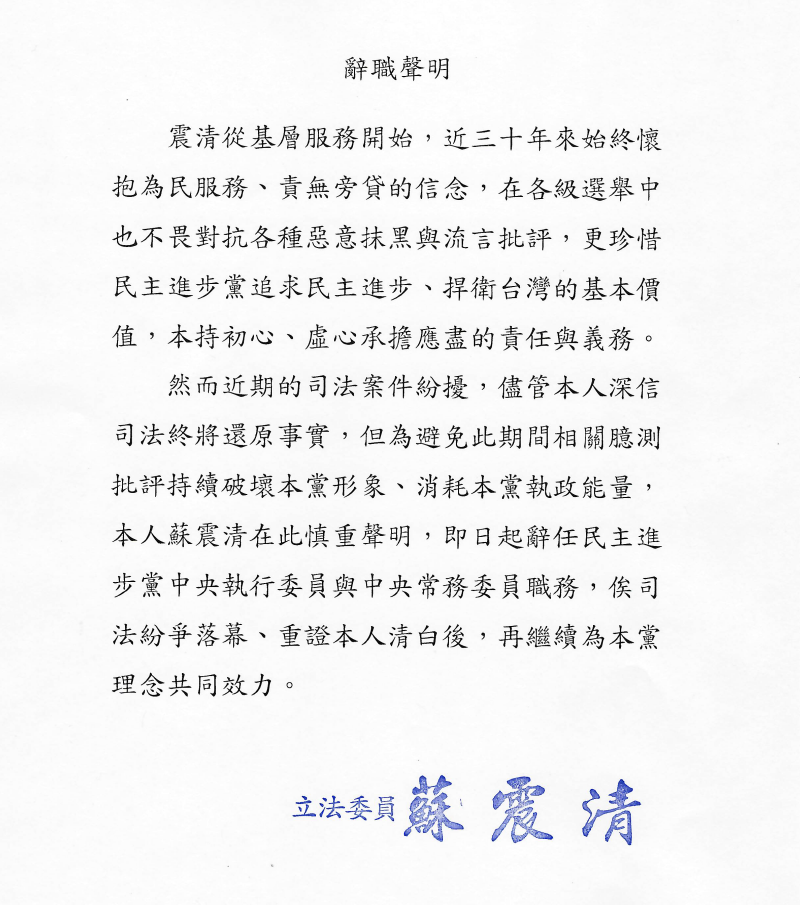 辭職聲明
震清從基層服務開始，近三十年來始終懷
抱為民服務、責無旁貸的信念，在各級選舉中
也不畏對抗各種惡意抹黑與流言批評，更珍惜
民主進步黨追求民主進步、捍衛台灣的基本價
值，本持初心、虛心承擔應盡的責任與義務。
然而近期的司法案件紛擾，儘管本人深信
司法終將還原事實，但為避免此期間相關臆測
批評持續破壞本黨形象、消耗本黨執政能量，
本人蘇震清在此慎重聲明，即日起辭任民主進
步黨中央執行委員與中央常務委員職務，俟司
法紛爭落幕、重證本人清白後，再繼續為本黨
理念共同效力。
立法委員 蘇震清